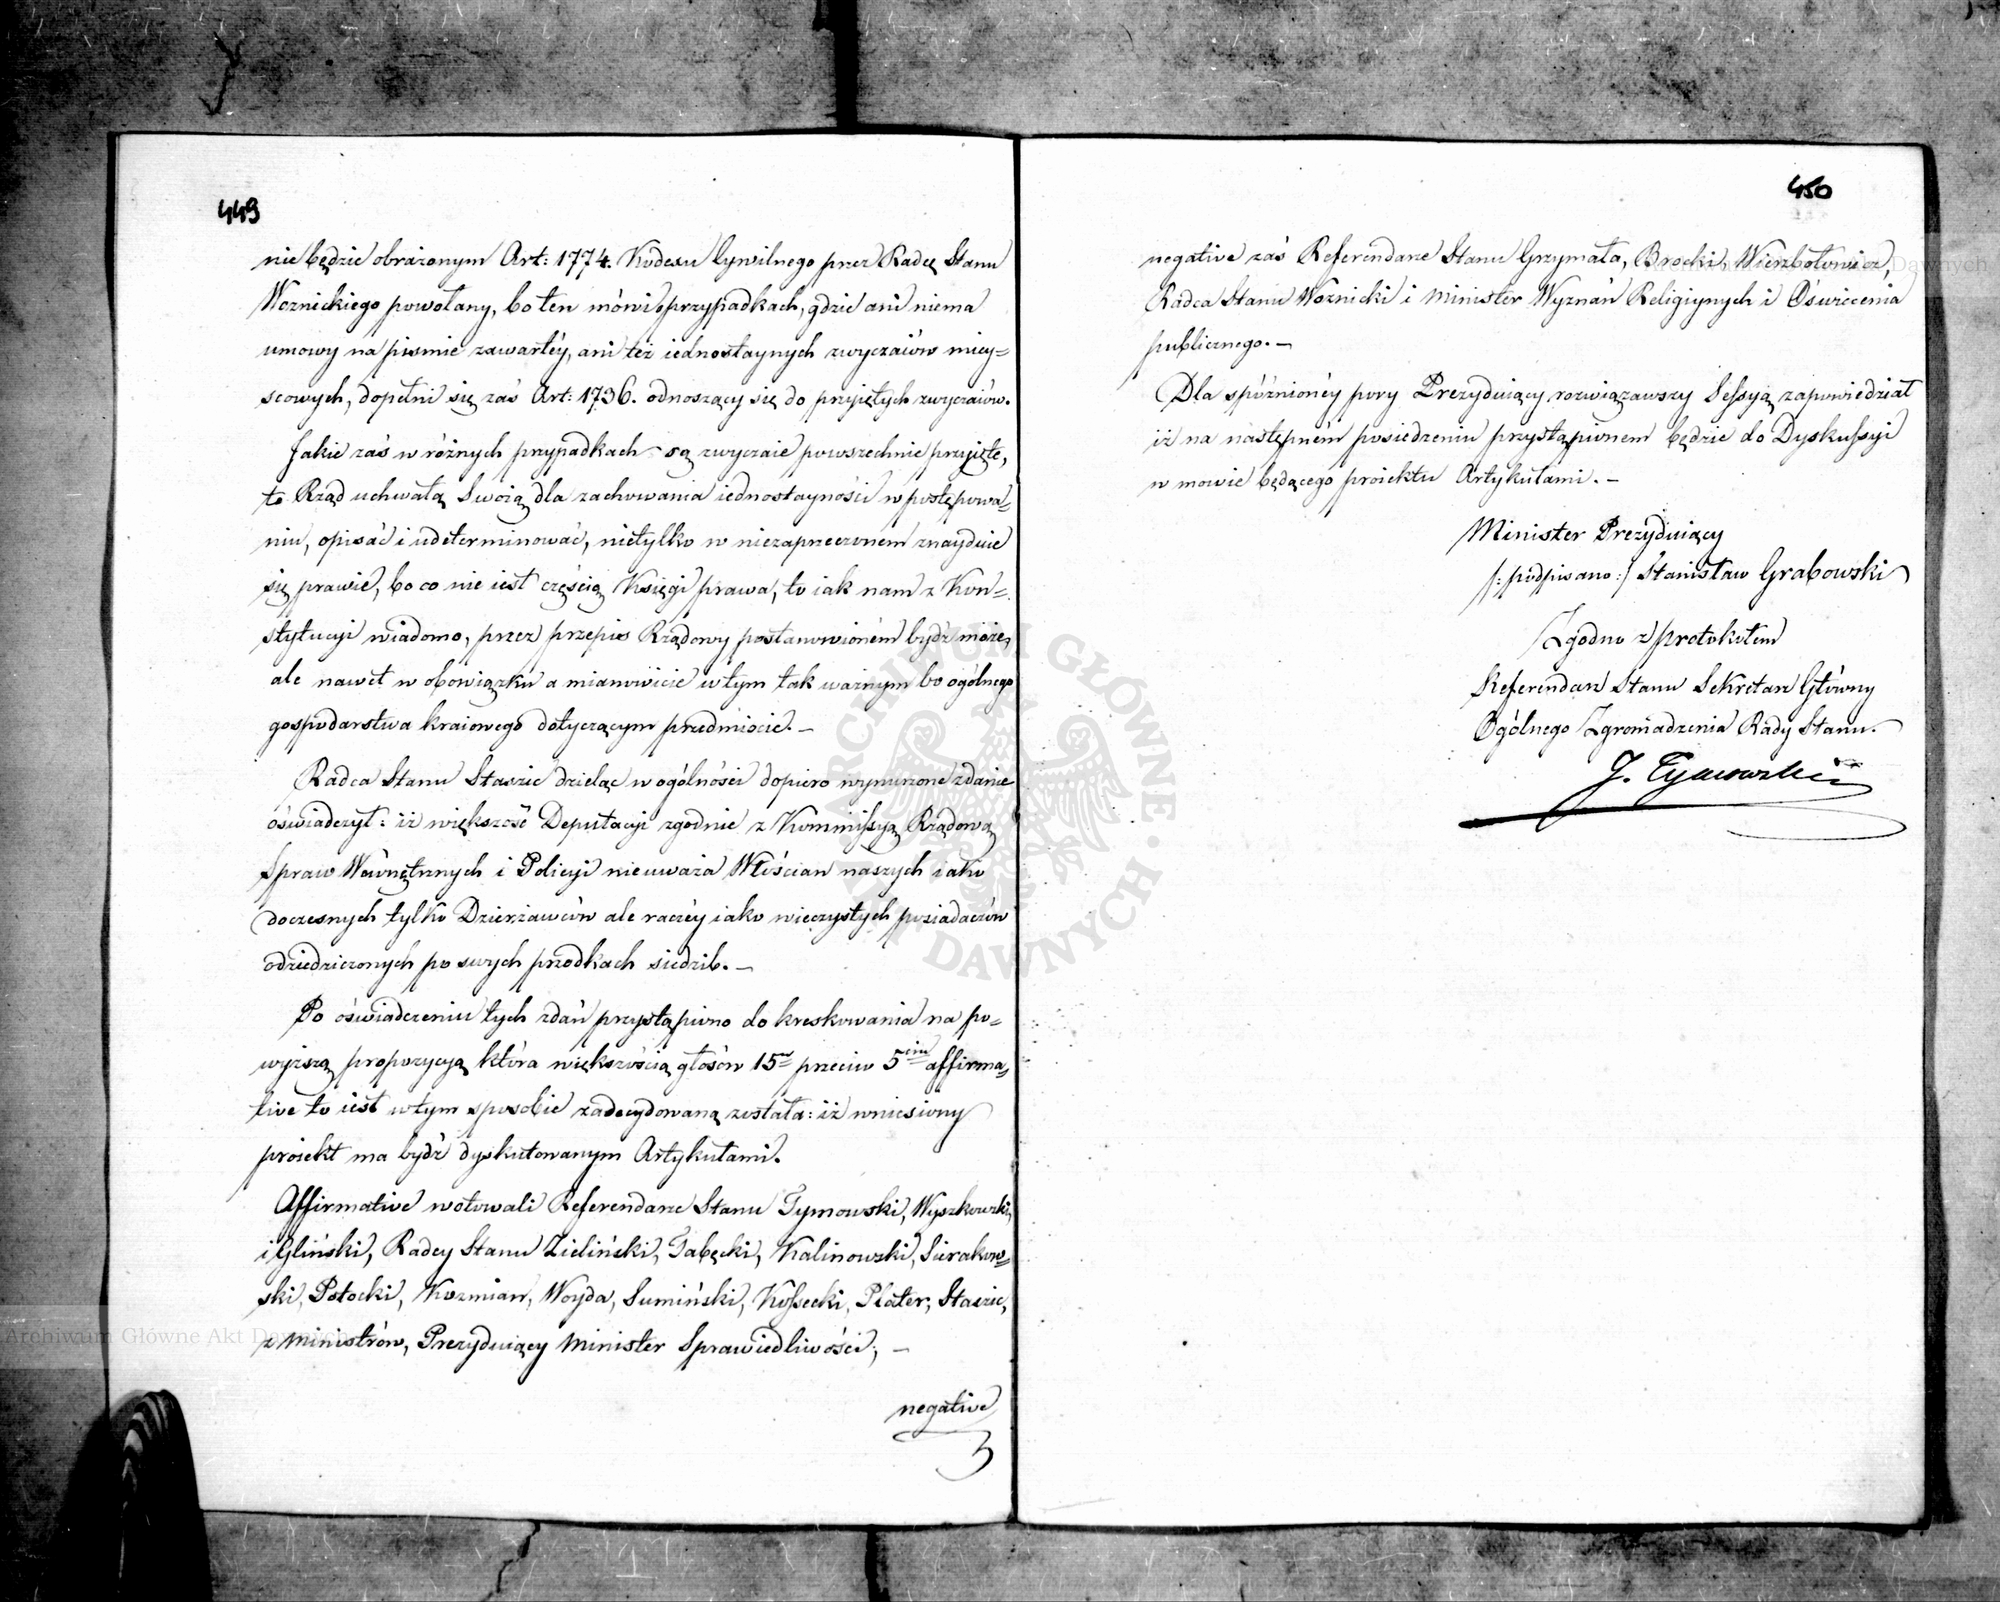 449
nie będzie obrażonym Art: 1774. Kodexu Cywilnego przez Radcę Stanu
Woznickiego powołany, bo ten mówi o przypadkach, gdzie ani niema
umowy na piśmie zawartéy, ani też iednostaynych zwyczaiów miey=
scowych, dopełni się zaś Art: 1736. odnoszący się do przyiętych zwyczaiów.
Jakie zaś w różnych przypadkach są zwyczaie powszechnie przyięte,
to Rząd uchwałą Swoią dla zachowania iednostayności w postępowa=
niu, opisać i udeterminować, nietylko w niezaprzeczonem znayduie
się prawie, bo co nie iest częścią Księgi prawa, to iak nam z Kon=
stytucyi wiadomo, przez przepis Rządowy postanowioném bydź może,
ale nawet w obowiązku a mianowicie w tym tak ważnym bo ogólnego
gospodarstwa kraiowego dotyczącym przedmiocie. —
Radca Stanu Staszic dzieląc w ogólności dopiero wynurzone zdanie
oświadczył: iż większość Deputacyi zgodnie z Kommissyą Rządową
Spraw Wewnętrznych i Policyi nieuważa Włościan naszych iako
doczesnych tylko Dzierżawców ale raczéy iako wieczystych posiadaczów
odziedziczonych po swych przodkach siedzib. —
Po oświadczeniu tych zdań przystąpiono do kreskowania na po=
wyższą propozycyą która większością głosów 15u przeciw 5ciu affirma=
tive to iest w tym sposobie zadecydowaną została: iż wniesiony
proiekt ma bydź dyskutowanym Artykułami.
Affirmative wotowali Referendarze Stanu Tymowski, Wyszkowski,
i Gliński, Radcy Stanu Zieliński, Tabęcki, Kalinowski, Sierakow=
ski, Potocki, Kozmian, Woyda, Sumiński, Kossecki, Plater, Staszic,
z Ministrów, Prezyduiący Minister Sprawiedliwości; —
negative
450
negative zaś Referendarze Stanu Grzymała, Brocki, Wierzbołowicz,
Radca Stanu Woznicki i Minister Wyznań Religiynych i Oświecenia
publicznego. —
Dla spóźnionéy pory Prezyduiący rozwiązawszy Sessyą zapowiedział
iż na następném posiedzeniu przystąpionem będzie do Dyskussyi
w mowie będącego proiektu Artykułami. —
Minister Prezyduiący
/: podpisano :/ Stanisław Grabowski
Zgodno z protokołem
Referendarz Stanu Sekretarz Główny
Ogólnego Zgromadzenia Rady Stanu.
J. Tymowski
ARCHIWUM GŁÓWNE AKT DAWNYCH
Archiwum Główne Akt Dawnych